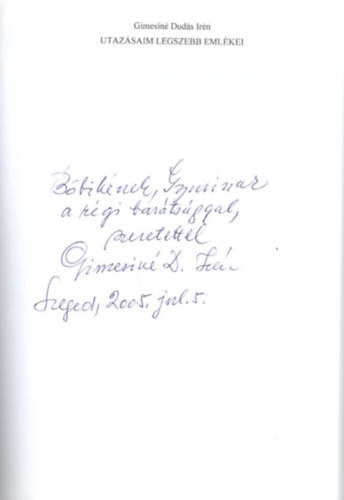 Gimesiné Dudás Irén
UTAZÁSAIM LEGSZEBB EMLÉKEI
Böbikének,
a régi barátsággal,
szeretettel
Gimesiné D. Irén
Szeged, 2005. jul. 5.